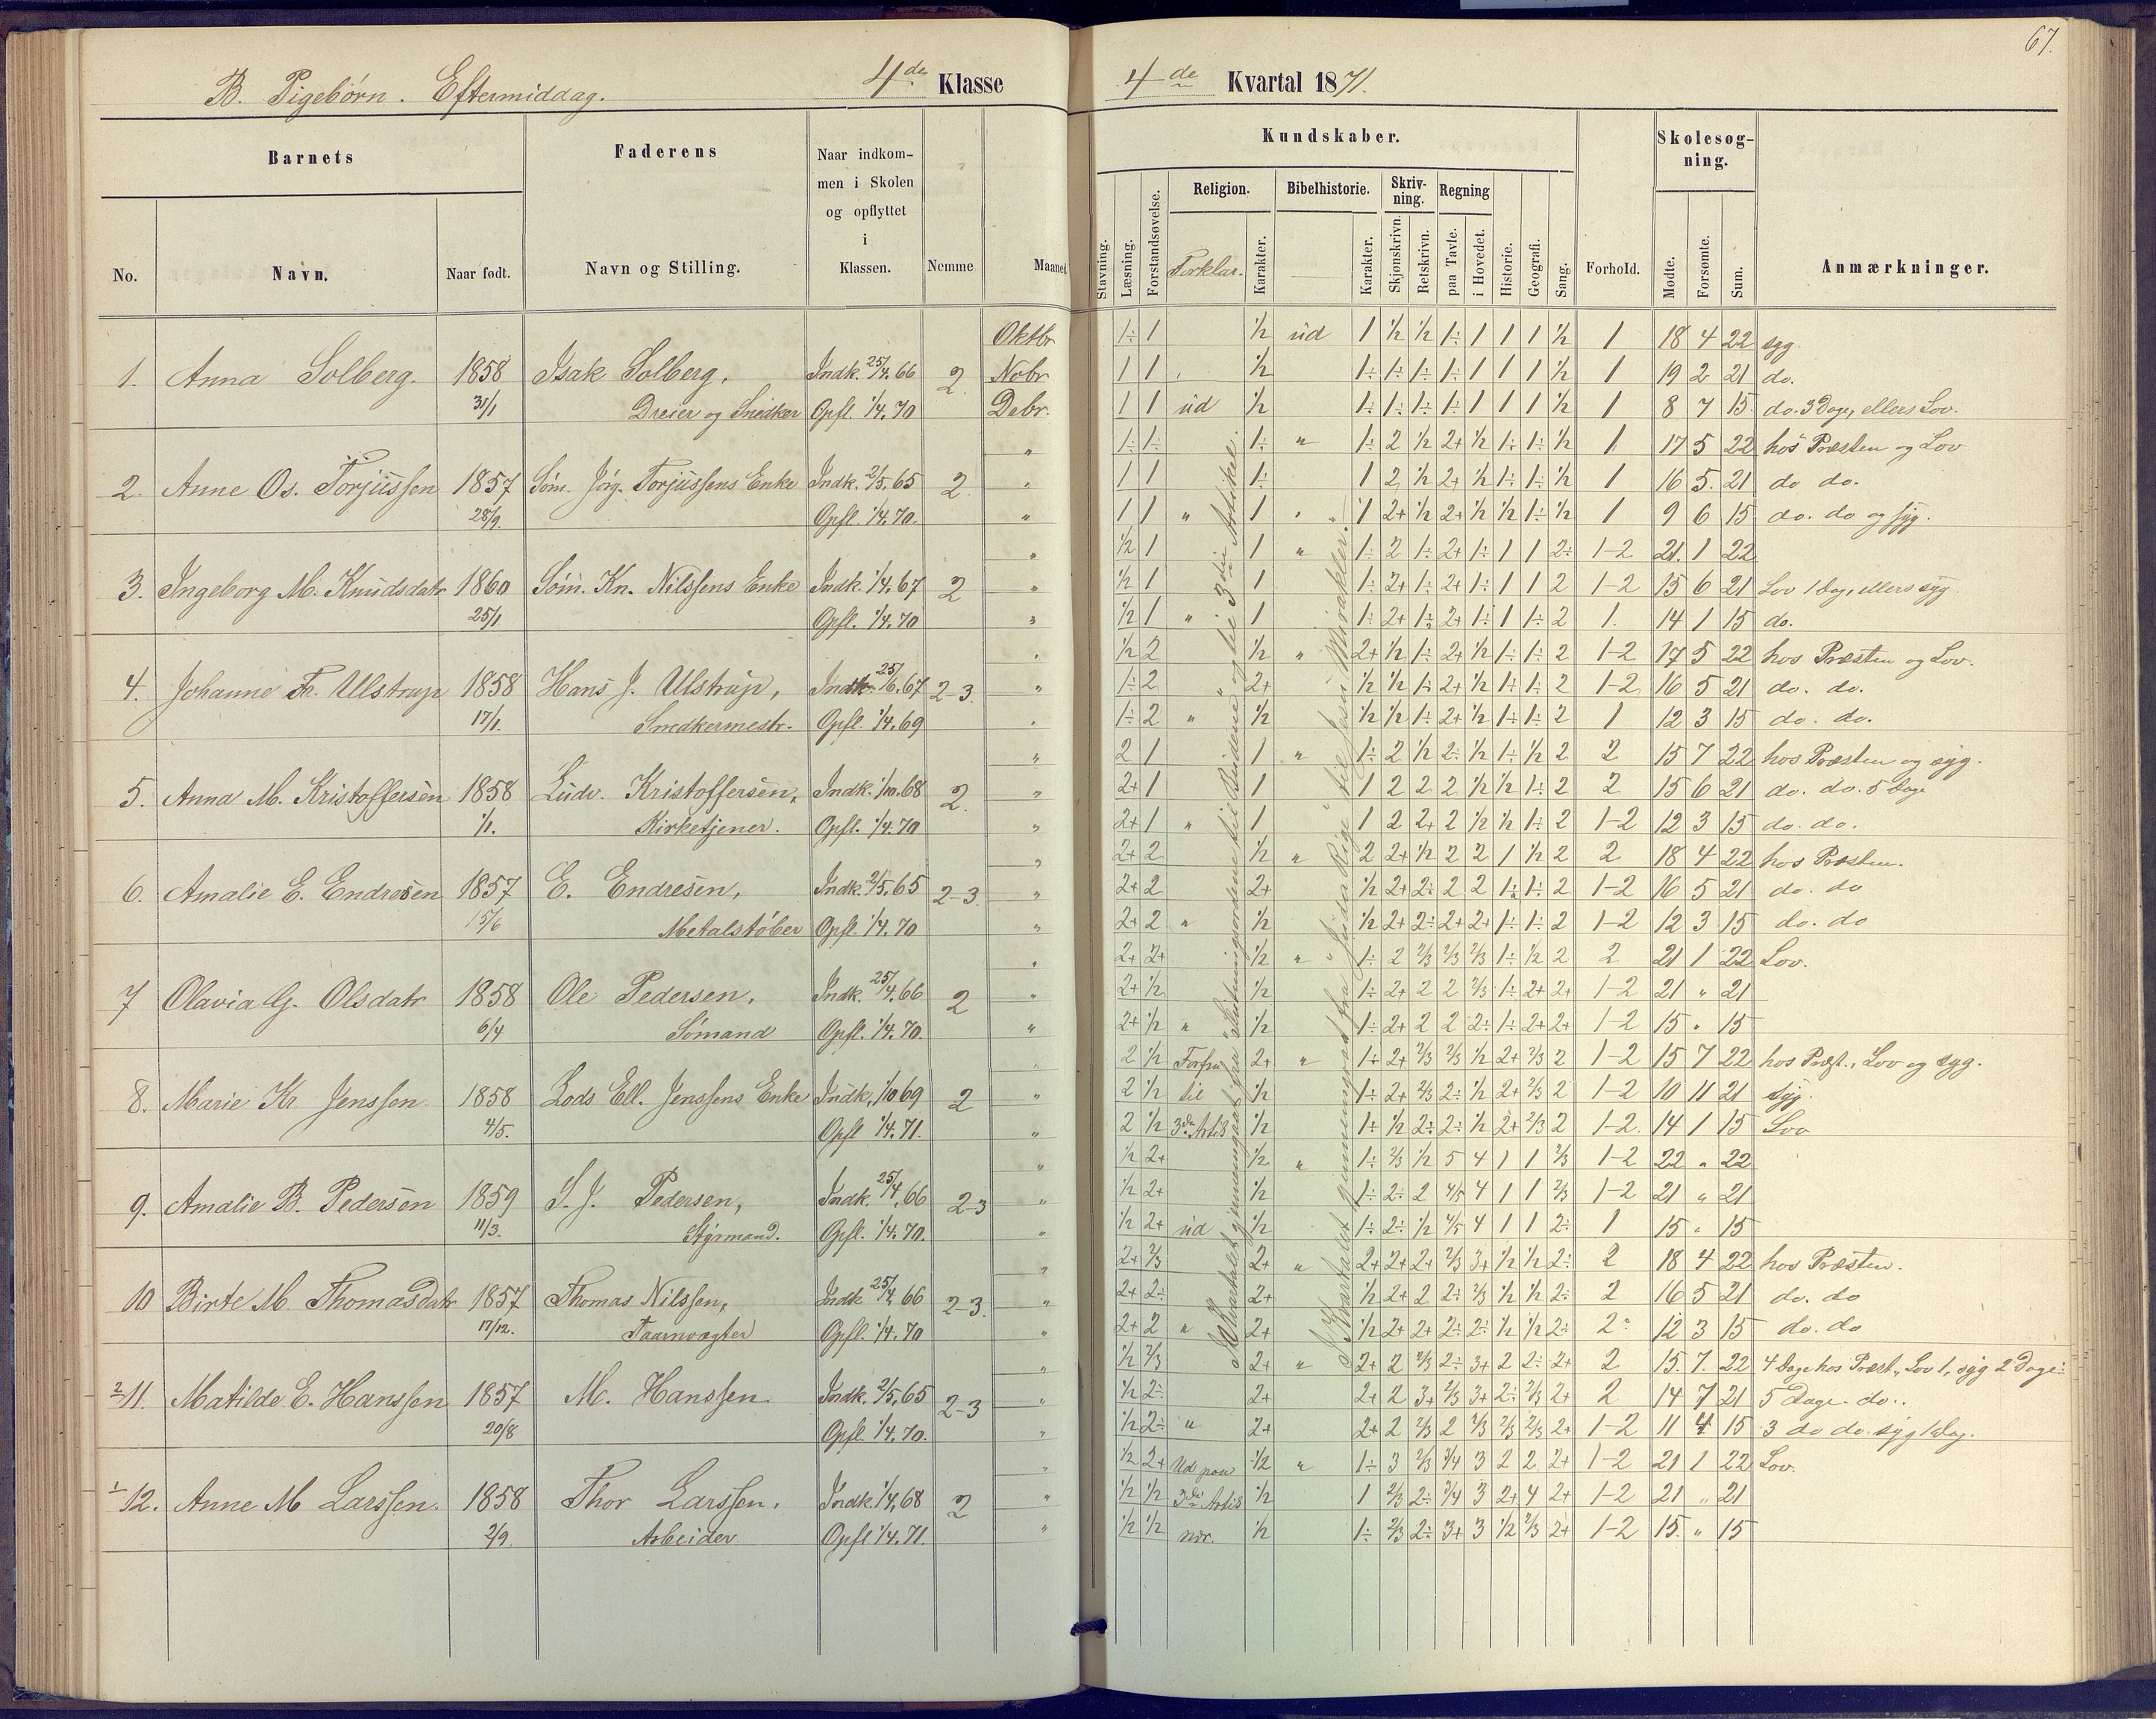 67.
B. Pigebørn. Eftermiddag. 4de Klasse 4de Kvartal 1871.
Barnets Faderens Naar indkommen i Skolen og opflyttet i Klassen. Nemme Maaned
No. Navn. Naar født. Navn og Stilling.
Kundskaber. Skolesøgning.
Stavning. Læsning. Forstandsøvelse. Religion. Forklar. Karakter. Bibelhistorie. Karakter. Skrivning. Skjønskrivn. Retskrivn. Regning paa Tavle. i Hovedet. Historie. Geografi. Sang. Forhold. Mødte. Forsømte. Sum. Anmærkninger.
Oktbr 1÷ 1 ½ ud 1 ½ ½ 1÷ 1 1 1 ½ 1 18 4 22 syg.
1. Anna Solberg. 1858 Isak Solberg, Indk. 25/4. 66 2. Nobr 1 1 ½ 1÷ 1÷ 1÷ 1÷ 1 1 1 ½ 1 19 2 21 do.
31/1 Dreier og Snedker Opfl. 1/4. 70 Debr. 1 1 ud ½ 1÷ 1÷ 1÷ 1÷ 1 1 1 ½ 1 8 7 15 do. 3 Dage, ellers Lov.
" 1÷ 1÷ 1÷ " 1÷ 2 ½ 2+ ½ 1÷ 1÷ ½ 1 17 5 22 hos Præsten og Lov
2. Anne Os. Torjussen 1857 Søm. Jørg. Torjussens Enke Indk. 2/5. 65 2 " 1 1 1÷ 1 2 ½ 2+ ½ 1÷ 1÷ ½ 1 16 5 21 do do.
28/9. Opfl. 1/4. 70. " 1 1 " 1 " 1 2+ ½ 2+ ½ ½ 1÷ ½ 1 9 6 15 do. do og syg.
" ½ 1 1 " 1÷ 2 1÷ 2+ 1÷ 1 1 2÷ 1-2 21 1 22
3. Ingeborg M. Knudsdatr 1860 Søm. Kn. Nilssens Enke Indk. 1/4. 67 2 " ½ 1 1 1÷ 2+ 1÷ 2+ 1÷ 1 1 2 1-2 15 6 21 Lov 1 Dag, ellers syg.
25/1 Opfl. 1/4. 70 " ½ 1 " 1 1÷ 2+ 1÷ 2+ 1÷ 1 1÷ 2 1. 14 1 15 do.
" ½ 2 ½ " 2+ ½ 1÷ 2+ ½ 1÷ 1÷ 2 1-2 17 5 22 hos Præsten og Lov.
4. Johanne Fr. Ullstrup 1858 Hans J. Ullstrup, Indk. 25/6. 67 2-3 " 1÷ 2 2+ ½ ½ 1÷ 2+ ½ 1÷ 1÷ 2 1-2 16 5 21 do. do.
17/1. Snedkermestr. Opfl. 1/4. 69 " 1÷ 2 " ½ ½ ½ 1÷ 2+ ½ 1÷ 1÷ 2 1 12 3 15 do. do.
" 2 1 1 " 1÷ 2 ½ 2÷ ½ 1÷ ½ 2 2 15 7 22 hos Præsten og syg.
5. Anna M. Kristoffersen 1858 Ludv. Kristoffersen, Indk. 1/10. 68 2. " 2+ 1 1 1 2 2 2 ½ ½ 1÷ 2 2 15 6 21 do. do. 5 Dage
1/1. Kirketjener. Opfl. 1/4. 70 " 2+ 1 " 1 1 2 2+ 2 ½ ½ 1÷ 2 1-2 12 3 15 do. do.
" 2+ 2 ½ " 2 2+ ½ 2 2 1 ½ 2 2 18 4 22 hos Præsten.
6. Amalie E. Endresen 1857 E. Endresen, Indk. 2/5. 65 2-3. " 2+ 2 2+ ½ 2+ 2÷ 2 2 1÷ 1÷ 2 1-2 16 5 21 do. do
15/6 Metalstøber Opfl. 1/4. 70 " 2+ 2 " ½ ½ 2+ 2÷ 2+ 2+ 1÷ 1÷ 2 1-2 12 3 15 do. do
" 2+ 2+ ½ " 1÷ 2 2/3 2/3 2/3 1÷ ½ 2 2 21 1 22 Lov.
7 Olavia G. Olsdatr 1858 Ole Pedersen, Indk. 25/4. 66 2 " 2+ ½ ½ 1÷ 2+ 2 2 2/3 1÷ 2+ 2+ 1-2 21 " 21
6/4 Sømand Opfl. 1/4. 70. " 2+ ½ " ½ 1÷ 2+ 2 2 2÷ 1÷ 2+ 2+ 1-2 15 " 15
2 ½ Forfra 2+ " 1÷ 2+ 2/3 2/3 ½ 2+ 2/3 2 1-2 15 7 22 hos Præst., Lov og syg.
8. Marie Kr Jenssen 1858 Lods Ell. Jenssens Enke Indk. 1/10 69 2 " 2 ½ til ½ 1÷ 2+ 2/3 2÷ ½ 2+ 2/3 2 1-2 10 11 21 syg.
4/5. Opfl 1/4. 71. " 2 ½ 3die Artik ½ 1÷ ½ 2÷ 2÷ ½ 2+ 2/3 2 1-2. 14 1 15 Lov
" ½ 2+ ½ " 1÷ 2/3 ½ 5 4 1 1 2/3 1-2 22 " 22
9. Amalie B. Pedersen 1859 S. J. Pedersen, Indk. 25/4. 66 2-3 " ½ 2+ ½ 1÷ 2÷ 2 4/5 4 1 1 2/3 1-2 21 " 21
11/3. Styrmand. Opfl. 1/4. 70. " ½ 2+ ud ½ 1÷ 2÷ ½ 4/5 4 1 1 2÷ 1 15 " 15
" 2+ 2/3 2+ " 2+ 2+ 2+ 2/3 3+ ½ ½ 2÷ 2 18 4 22 hos Præsten.
10 Birte M. Thomasdatr 1857 Thomas Nilssen, Indk 25/4. 66 2-3. " 2+ 2÷ 2+ ½ 2+ 2 2÷ 2/3 ½ ½ 2÷ 2 16 5 21 do. do
17/12. Taarnvægter Opfl. 1/4. 70 " 2+ 2 " 2+ ½ 2+ 2+ 2÷ 2÷ ½ ½ 2÷ 2 12 3 15 do. do
" ½ 2/3 2+ " 2+ 2 2/3 2÷ 3+ 2 2÷ 2+ 2 15. 7. 22 4 Dage hos Præst., Lov 1, syg 2 Dage.
11. Matilde E. Hanssen 1857 M. Hanssen. Indk. 2/5. 65 2-3 " ½ 2÷ 2+ 2+ 2 3+ 2/3 3+ 2÷ 2/3 2+ 2 14 7 21 5 Dage. do.
20/8 Opfl. 1/4. 70. " ½ 2÷ " 2+ 2+ 2 2/3 2 2/3 2/3 2/3 2+ 1-2 11 4 15 3 do do. syg 1 Dag.
" ½ 2+ Ud paa ½ " 1÷ 3 2/3 3/4 3 2 2 2+ 1-2 21 1 22 Lov.
12. Anne M Larssen. 1858 Thor Larssen, Indk 1/4. 68 2 " ½ ½ 3die Artik ½ 1 2/3 2÷ 3/4 3 2+ 4 2+ 1-2 21 " 21
2/9. Arbeider Opfl 1/4. 71. " ½ ½ nær. ½ 1÷ 2/3 2÷ 3+ 3 ½ 2/3 2+ 1-2 15. " 15
I Kvartalet gjennemgaaet fra "Slutningsordene til Budene" og til 3die Artikel.
I Kvartalet gjennemgaaet fra "Juda Rige" til "Jesu Mirakler".